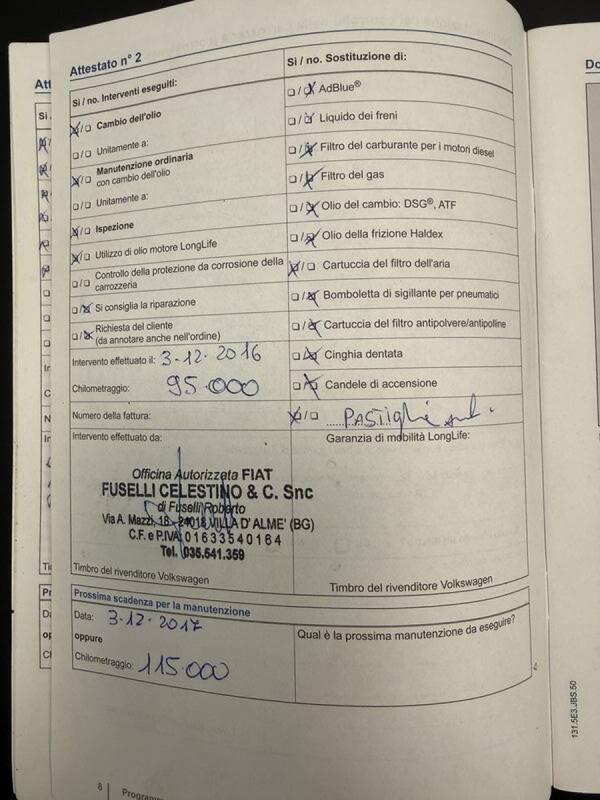 Attestato n° 2
Sì / no. Interventi eseguiti:
☒/☐ Cambio dell'olio
☐/☐ Unitamente a:
☒/☐ Manutenzione ordinaria
con cambio dell'olio
☐/☐ Unitamente a:
☒/☐ Ispezione
☒/☐ Utilizzo di olio motore LongLife
☐/☐ Controllo della protezione da corrosione della
carrozzeria
☐/☒ Si consiglia la riparazione
☐/☒ Richiesta del cliente
(da annotare anche nell'ordine)
Intervento effettuato il: 3-12-2016
Chilometraggio: 95.000
Numero della fattura:
Intervento effettuato da:
Officina Autorizzata FIAT
FUSELLI CELESTINO & C. Snc
di Fuselli Roberto
Via A. Mazzi, 18 - 24018 VILLA D'ALME' (BG)
C.F. e P.IVA 01633540164
Tel. 035.541.359
Timbro del rivenditore Volkswagen
Sì / no. Sostituzione di:
☐/☒ AdBlue®
☐/☒ Liquido dei freni
☐/☒ Filtro del carburante per i motori diesel
☐/☒ Filtro del gas
☐/☒ Olio del cambio: DSG®, ATF
☐/☒ Olio della frizione Haldex
☒/☐ Cartuccia del filtro dell'aria
☐/☒ Bomboletta di sigillante per pneumatici
☐/☒ Cartuccia del filtro antipolvere/antipolline
☐/☒ Cinghia dentata
☐/☒ Candele di accensione
☒/☐ PASTIGLIE
Garanzia di mobilità LongLife:
Timbro del rivenditore Volkswagen
Prossima scadenza per la manutenzione
Data: 3-12-2017
oppure
Chilometraggio: 115.000
Qual è la prossima manutenzione da eseguire?
131.5E3.JBS.50
8